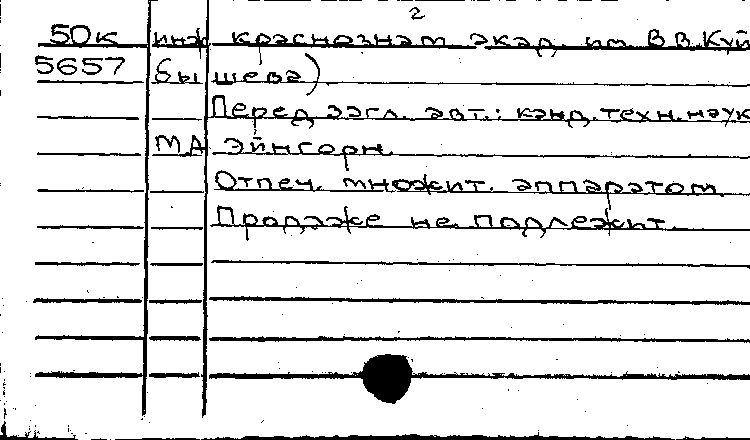 2
50к инж краснознам акад. им В.В.Куй
5657 бы шева)
Перед загл. авт.: канд.техн.наук
МА Эйнгорн.
Отпеч. множит. аппаратом.
Продаже не подлежит.